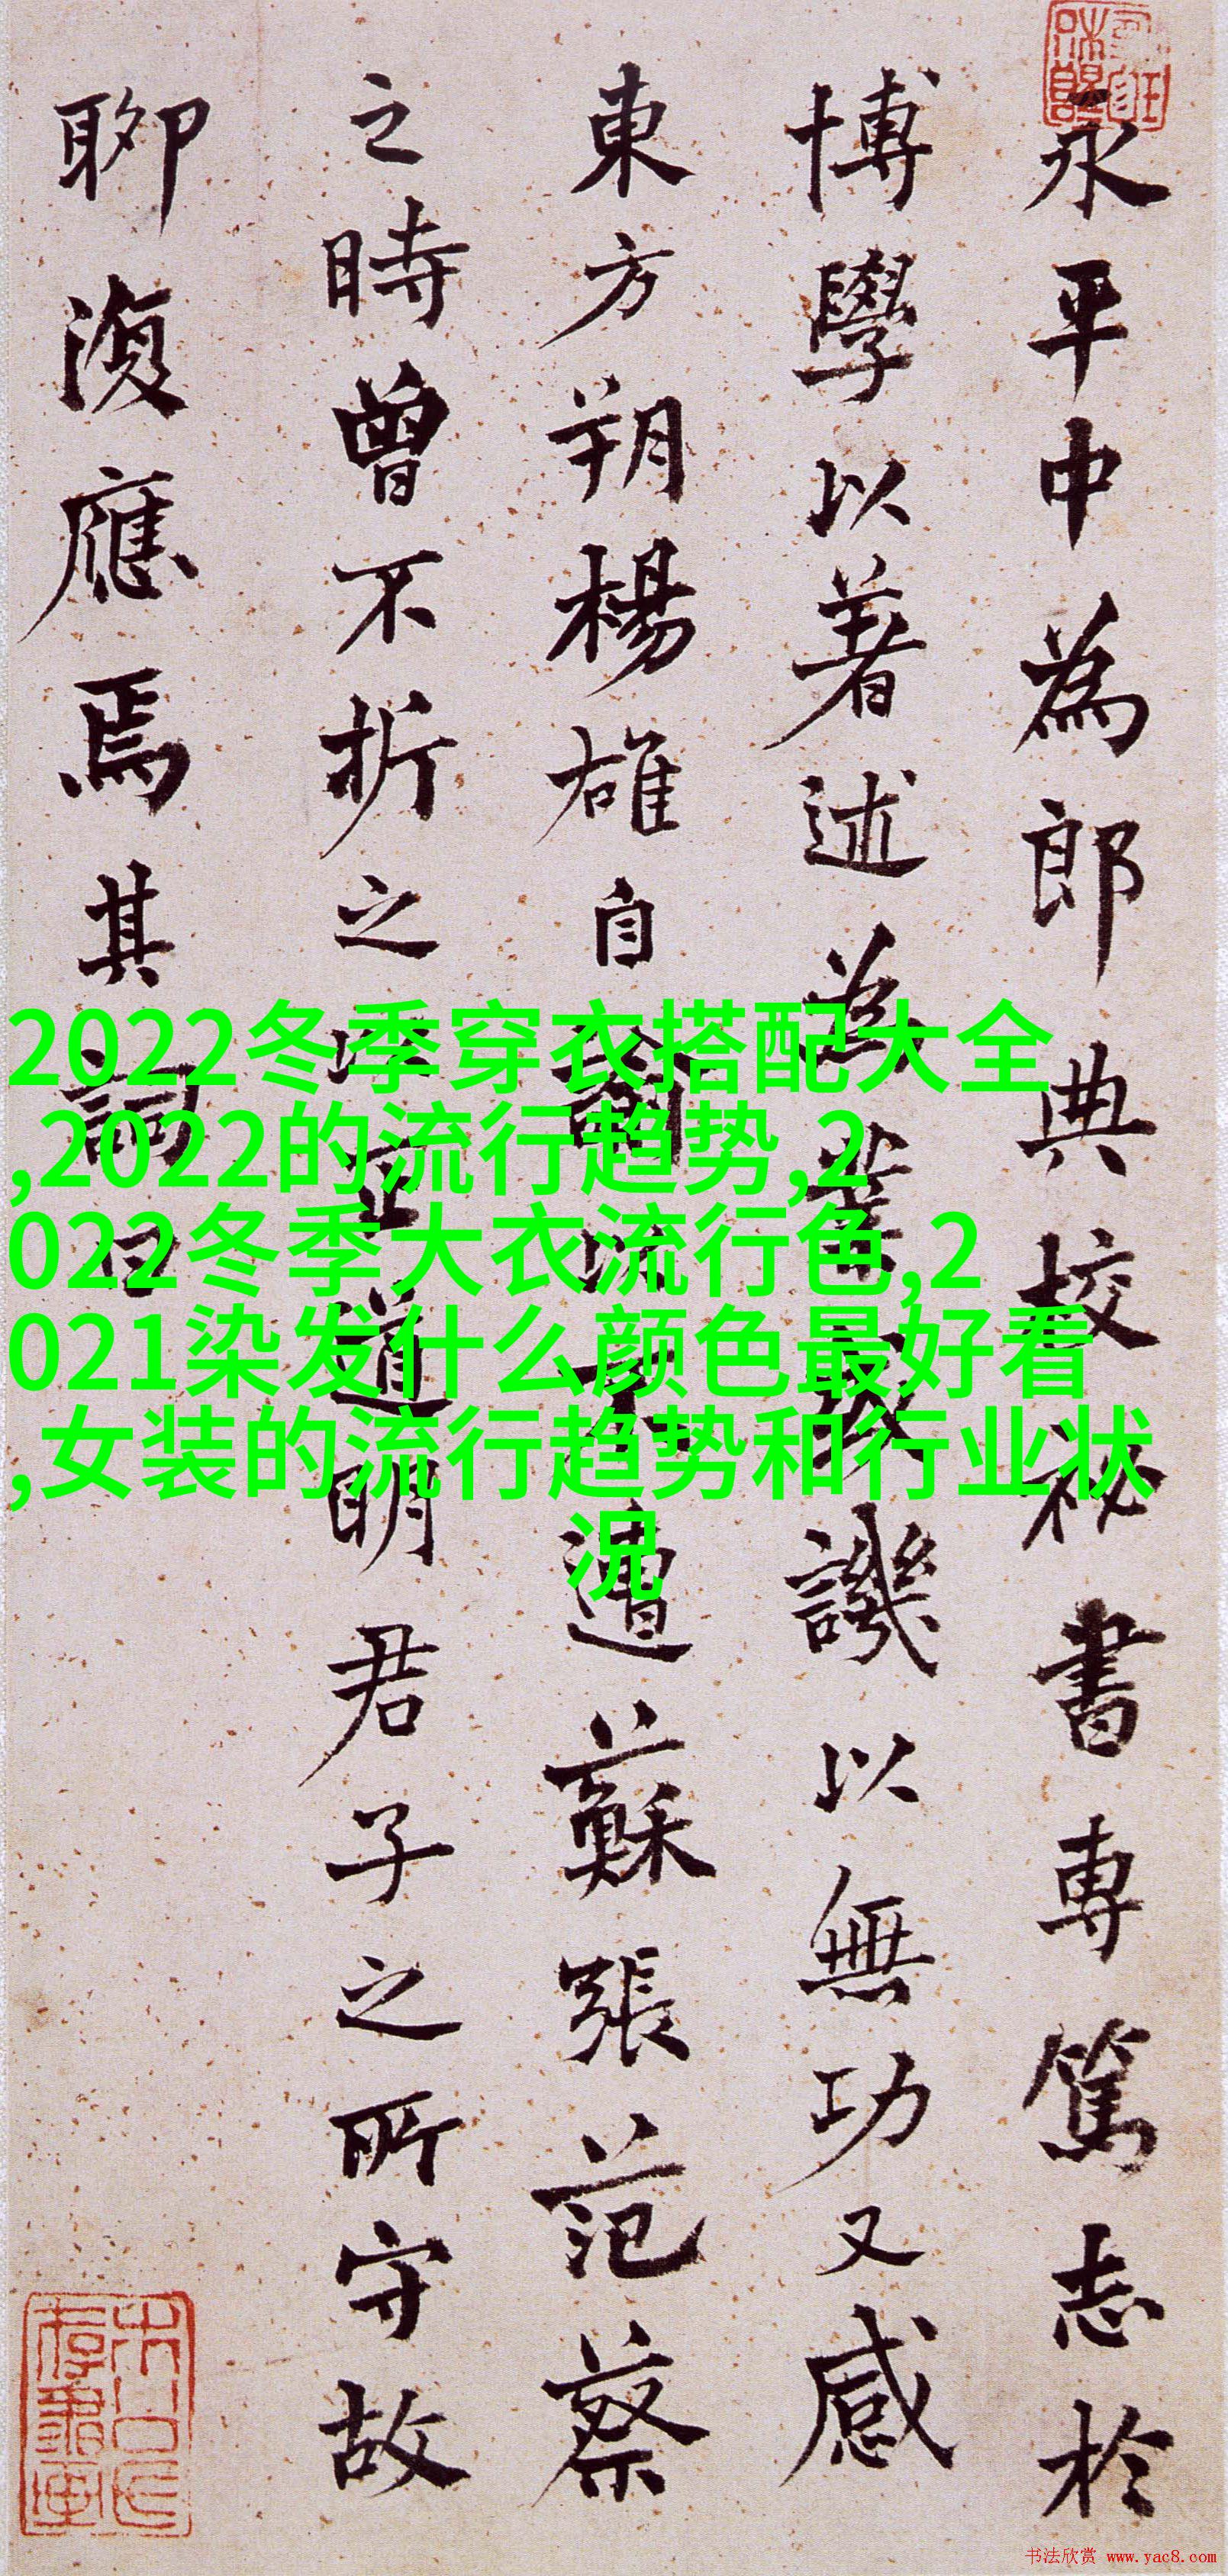 永平中為郎典校祕書專篤志於
博學以著述為業或譏以無功又感
東方朔楊雄自不遭蘇張范蔡
之時曾不折之正道明君子之所守故
聊復應焉其詞曰
2022冬季穿衣搭配大全
,2022的流行趋势,2
022冬季大衣流行色,2
021染发什么颜色最好看
,女装的流行趋势和行业状
况
书法欣赏 www.yac8.com